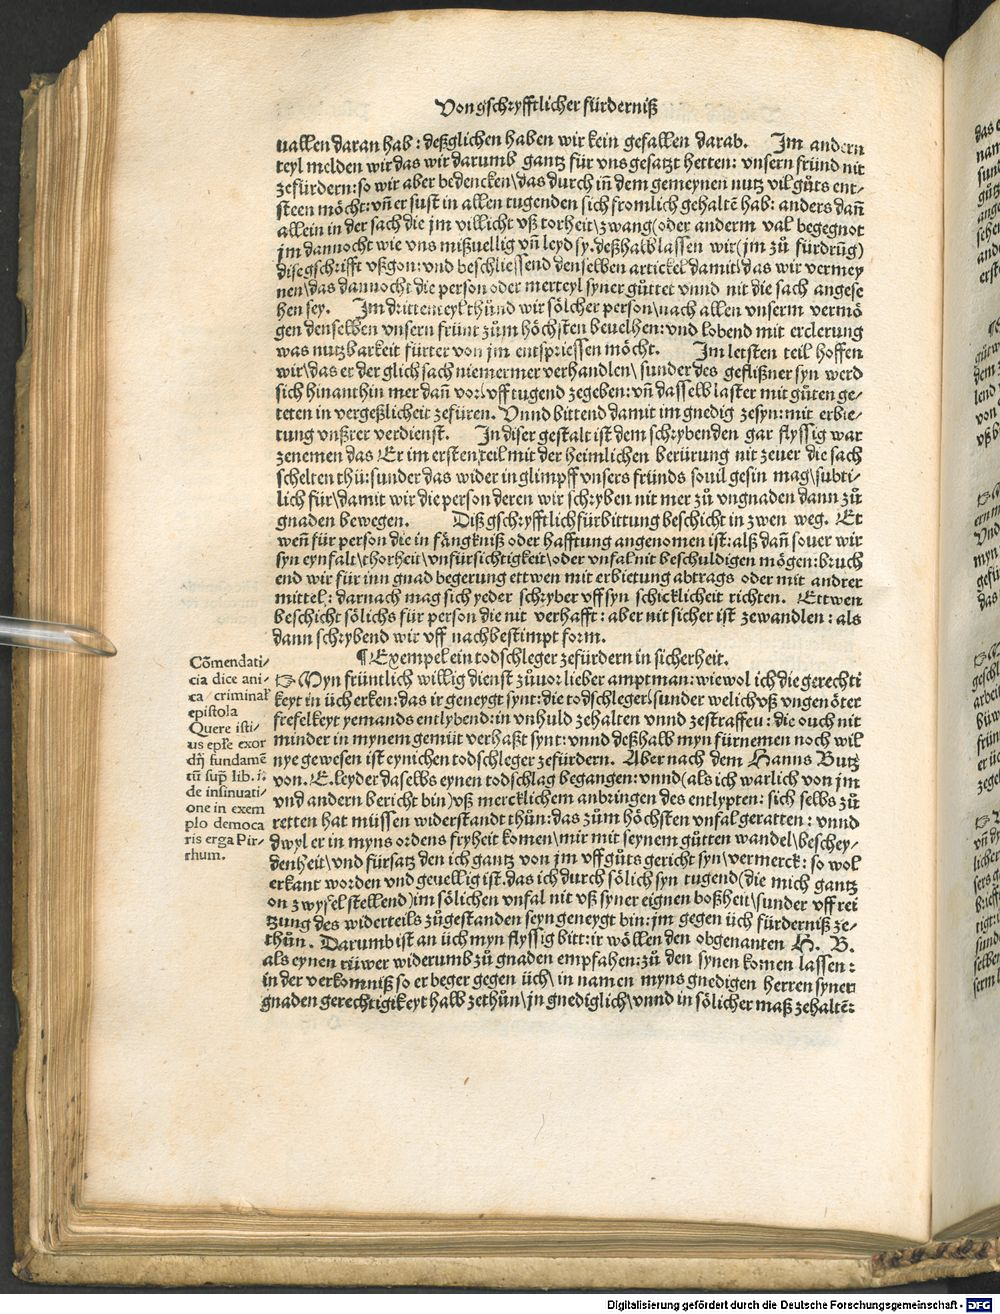 Von gschryfftlicher fürderniß
uallen daran hab: deßglichen haben wir kein gefallen darab. Im andern
teyl melden wir das wir darumb gantz für vns gesatzt hetten: vnsern fründ nit
zefürdern: so wir aber bedencken\das durch in̄ dem gemeynen nutz vil gůts ent-
steen möcht: vn̄ er sust in allen tugenden sich fromlich gehaltē hab: anders dan̄
allein in der sach die jm villicht vß torheit\zwang(oder anderm val begegnot
jm dannocht wie vns mißuellig vn̄ leyd sy. deßhalb lassen wir(jm zů fürdrūg)
dise gschrifft vßgon: vnd beschliessend denselben artickel damit\das wir vermey
nen\das dannocht die person oder merteyl syner gůttet vnnd nit die sach angese
hen sey. Im dritten teyl thůnd wir sölcher person\nach allen vnserm vermö
gen denselben vnsern frünt zům höchsten beuelhen: vnd lobend mit erclerung
was nutzbarkeit fürter von jm entspriessen möcht. Im letsten teil hoffen
wir\das er der glich sach niemermer verhandlen\sunder des geflißner syn werd
sich hinanthin mer dan̄ vor\vff tugend zegeben: vn̄ dasselb laster mit gůten ge-
teten in vergeßlicheit zefüren. Vnnd bittend damit im gnedig zesyn: mit erbie-
tung vnßrer verdienst. In diser gestalt ist dem schrybenden gar flyssig war
zenemen das Er im ersten teil mit der heimlichen berürung nit zeuer die sach
schelten thü: sunder das wider inglimpff vnsers fründs souil gesin mag\subti-
lich für\damit wir die person deren wir schryben nit mer zů vngnaden dann zů
gnaden bewegen. Diß gschryfftlich fürbittung beschicht in zwen weg. Et
wen̄ für person die in fängkniß oder hafftung angenomen ist: alß dan̄ souer wir
syn eynfalt\thorheit\vnfürsichtigkeit\oder vnfal nit beschuldigen mögen: bruch
end wir für inn gnad begerung ettwen mit erbietung abtrags oder mit andrer
mittel: darnach mag sich yeder schryber vff syn schicklicheit richten. Ettwen
beschicht sölichs für person die nit verhafft: aber nit sicher ist zewandlen: als
dann schrybend wir vff nachbestimpt form.
¶ Exempel ein todschleger zefürdern in sicherheit.
☞ Myn früntlich willig dienst zůuor lieber amptman: wiewol ich die gerechti
keyt in üch erken: das ir geneygt synt: die todschleger\sunder welich vß vngenöter
frefelkeyt yemands entlybend: in vnhuld zehalten vnnd zestraffeu: die ouch nit
minder in mynem gemüt verhaßt synt: vnnd deßhalb myn fürnemen noch wil
nye gewesen ist eynichen todschleger zefürdern. Aber nach dem Hanns Butz
von. E. leyder daselbs eynen todschlag begangen: vnnd(als ich warlich von jm
vnd andern bericht bin)vß mercklichem anbringen des entlypten: sich selbs zů
retten hat müssen widerstandt thůn: das zům höchsten vnfal geratten: vnnd
dwyl er in myns ordens fryheit komen\mir mit seynem gůtten wandel\beschey-
denheit\vnd fürsatz den ich gantz von jm vff gůts gericht syn\vermerck: so wol
erkant worden vnd geuellig ist. das ich durch sölich syn tugend(die mich gantz
on zwyfel stellend)im sölichen vnfal nit vß syner eignen boßheit\sunder vff rei
tzung des widerteils zůgestanden seyn geneygt bin: jm gegen üch fürderniß ze-
thůn. Darumb ist an üch myn flyssig bitt: ir wöllen den obgenanten H. B.
als eynen rüwer widerumb zů gnaden empfahen: zů den synen komen lassen:
in der verkomniß so er beger gegen üch\in namen myns gnedigen herren syner
gnaden gerechtigkeyt halb zethůn\jn gnediglich\vnnd in sölicher maß zehaltē:
Cōmendati-
cia dice ani-
ca / criminaľ
epistola
Quere isti-
us epľe exor
dij fundamē
tū sup̄ lib. i.
de insinuati-
one in exem
plo democa
ris erga Pir-
rhum.
Digitalisierung gefördert durch die Deutsche Forschungsgemeinschaft - DFG